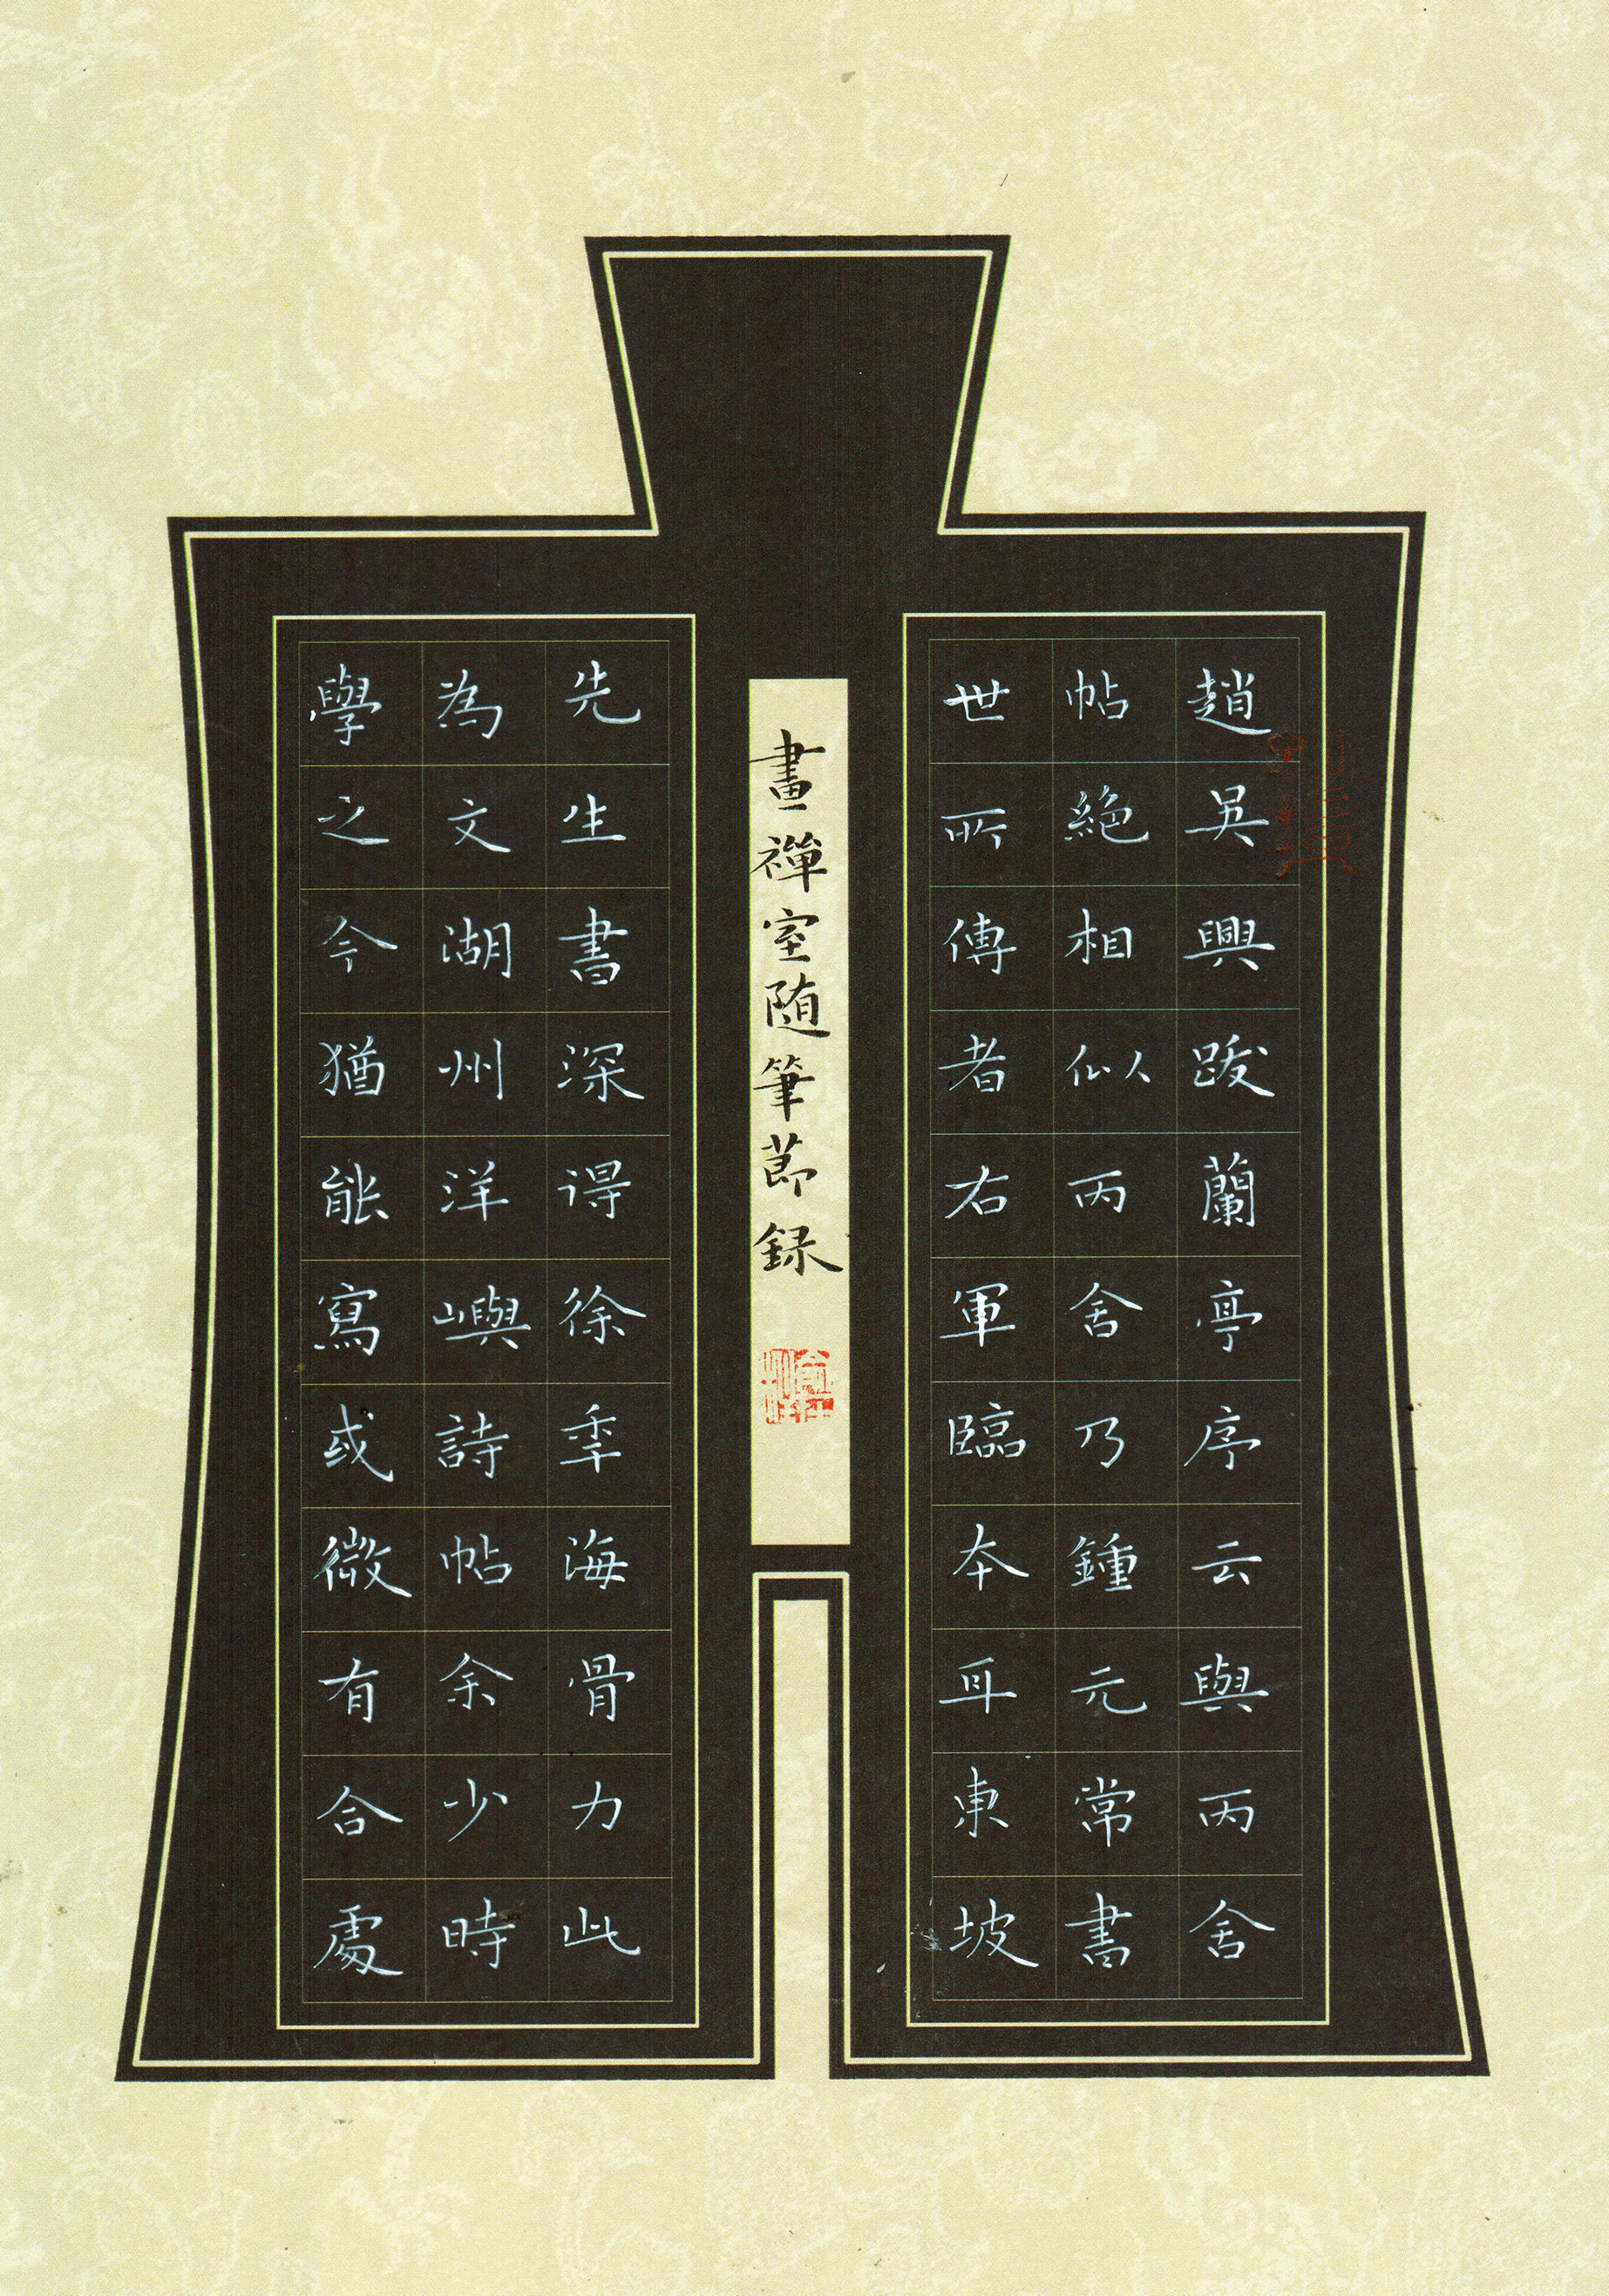 趙吳興跋蘭亭序云與丙舍
帖絶相似丙舍乃鍾元常書
世所傳者右軍臨本耳東坡
畫禪室随筆莭録
先生書深得徐季海骨力此
為文湖州洋嶼詩帖余少時
學之今猶能寫或微有合處